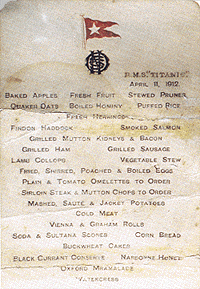 R.M.S. "TITANIC"
APRIL 11, 1912.
BAKED APPLES FRESH FRUIT STEWED PRUNES
QUAKER OATS BOILED HOMINY PUFFED RICE
FRESH HERRINGS
FINDON HADDOCK SMOKED SALMON
GRILLED MUTTON KIDNEYS & BACON
GRILLED HAM GRILLED SAUSAGE
LAMB COLLOPS VEGETABLE STEW
FRIED, SHIRRED, POACHED & BOILED EGGS
PLAIN & TOMATO OMELETTES TO ORDER
SIRLOIN STEAK & MUTTON CHOPS TO ORDER
MASHED, SAUTÉ & JACKET POTATOES
COLD MEAT
VIENNA & GRAHAM ROLLS
SODA & SULTANA SCONES CORN BREAD
BUCKWHEAT CAKES
BLACK CURRANT CONSERVE NARBONNE HONEY
OXFORD MARMALADE
WATERCRESS